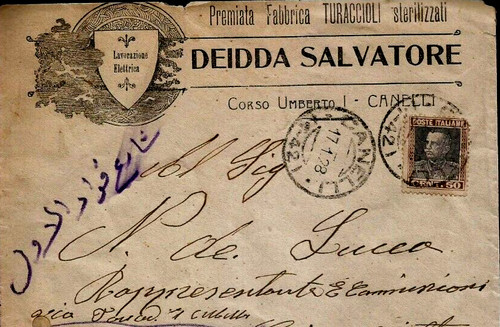 Premiata Fabbrica TURACCIOLI sterilizzati
Lavorazione
Elettrica
DEIDDA SALVATORE
CORSO UMBERTO I - CANELLI
CANELLI
17.1.28
42
POSTE ITALIANE
CENT. 50
Al Sig
N. de Lucca
Rappresentante E Commissioni